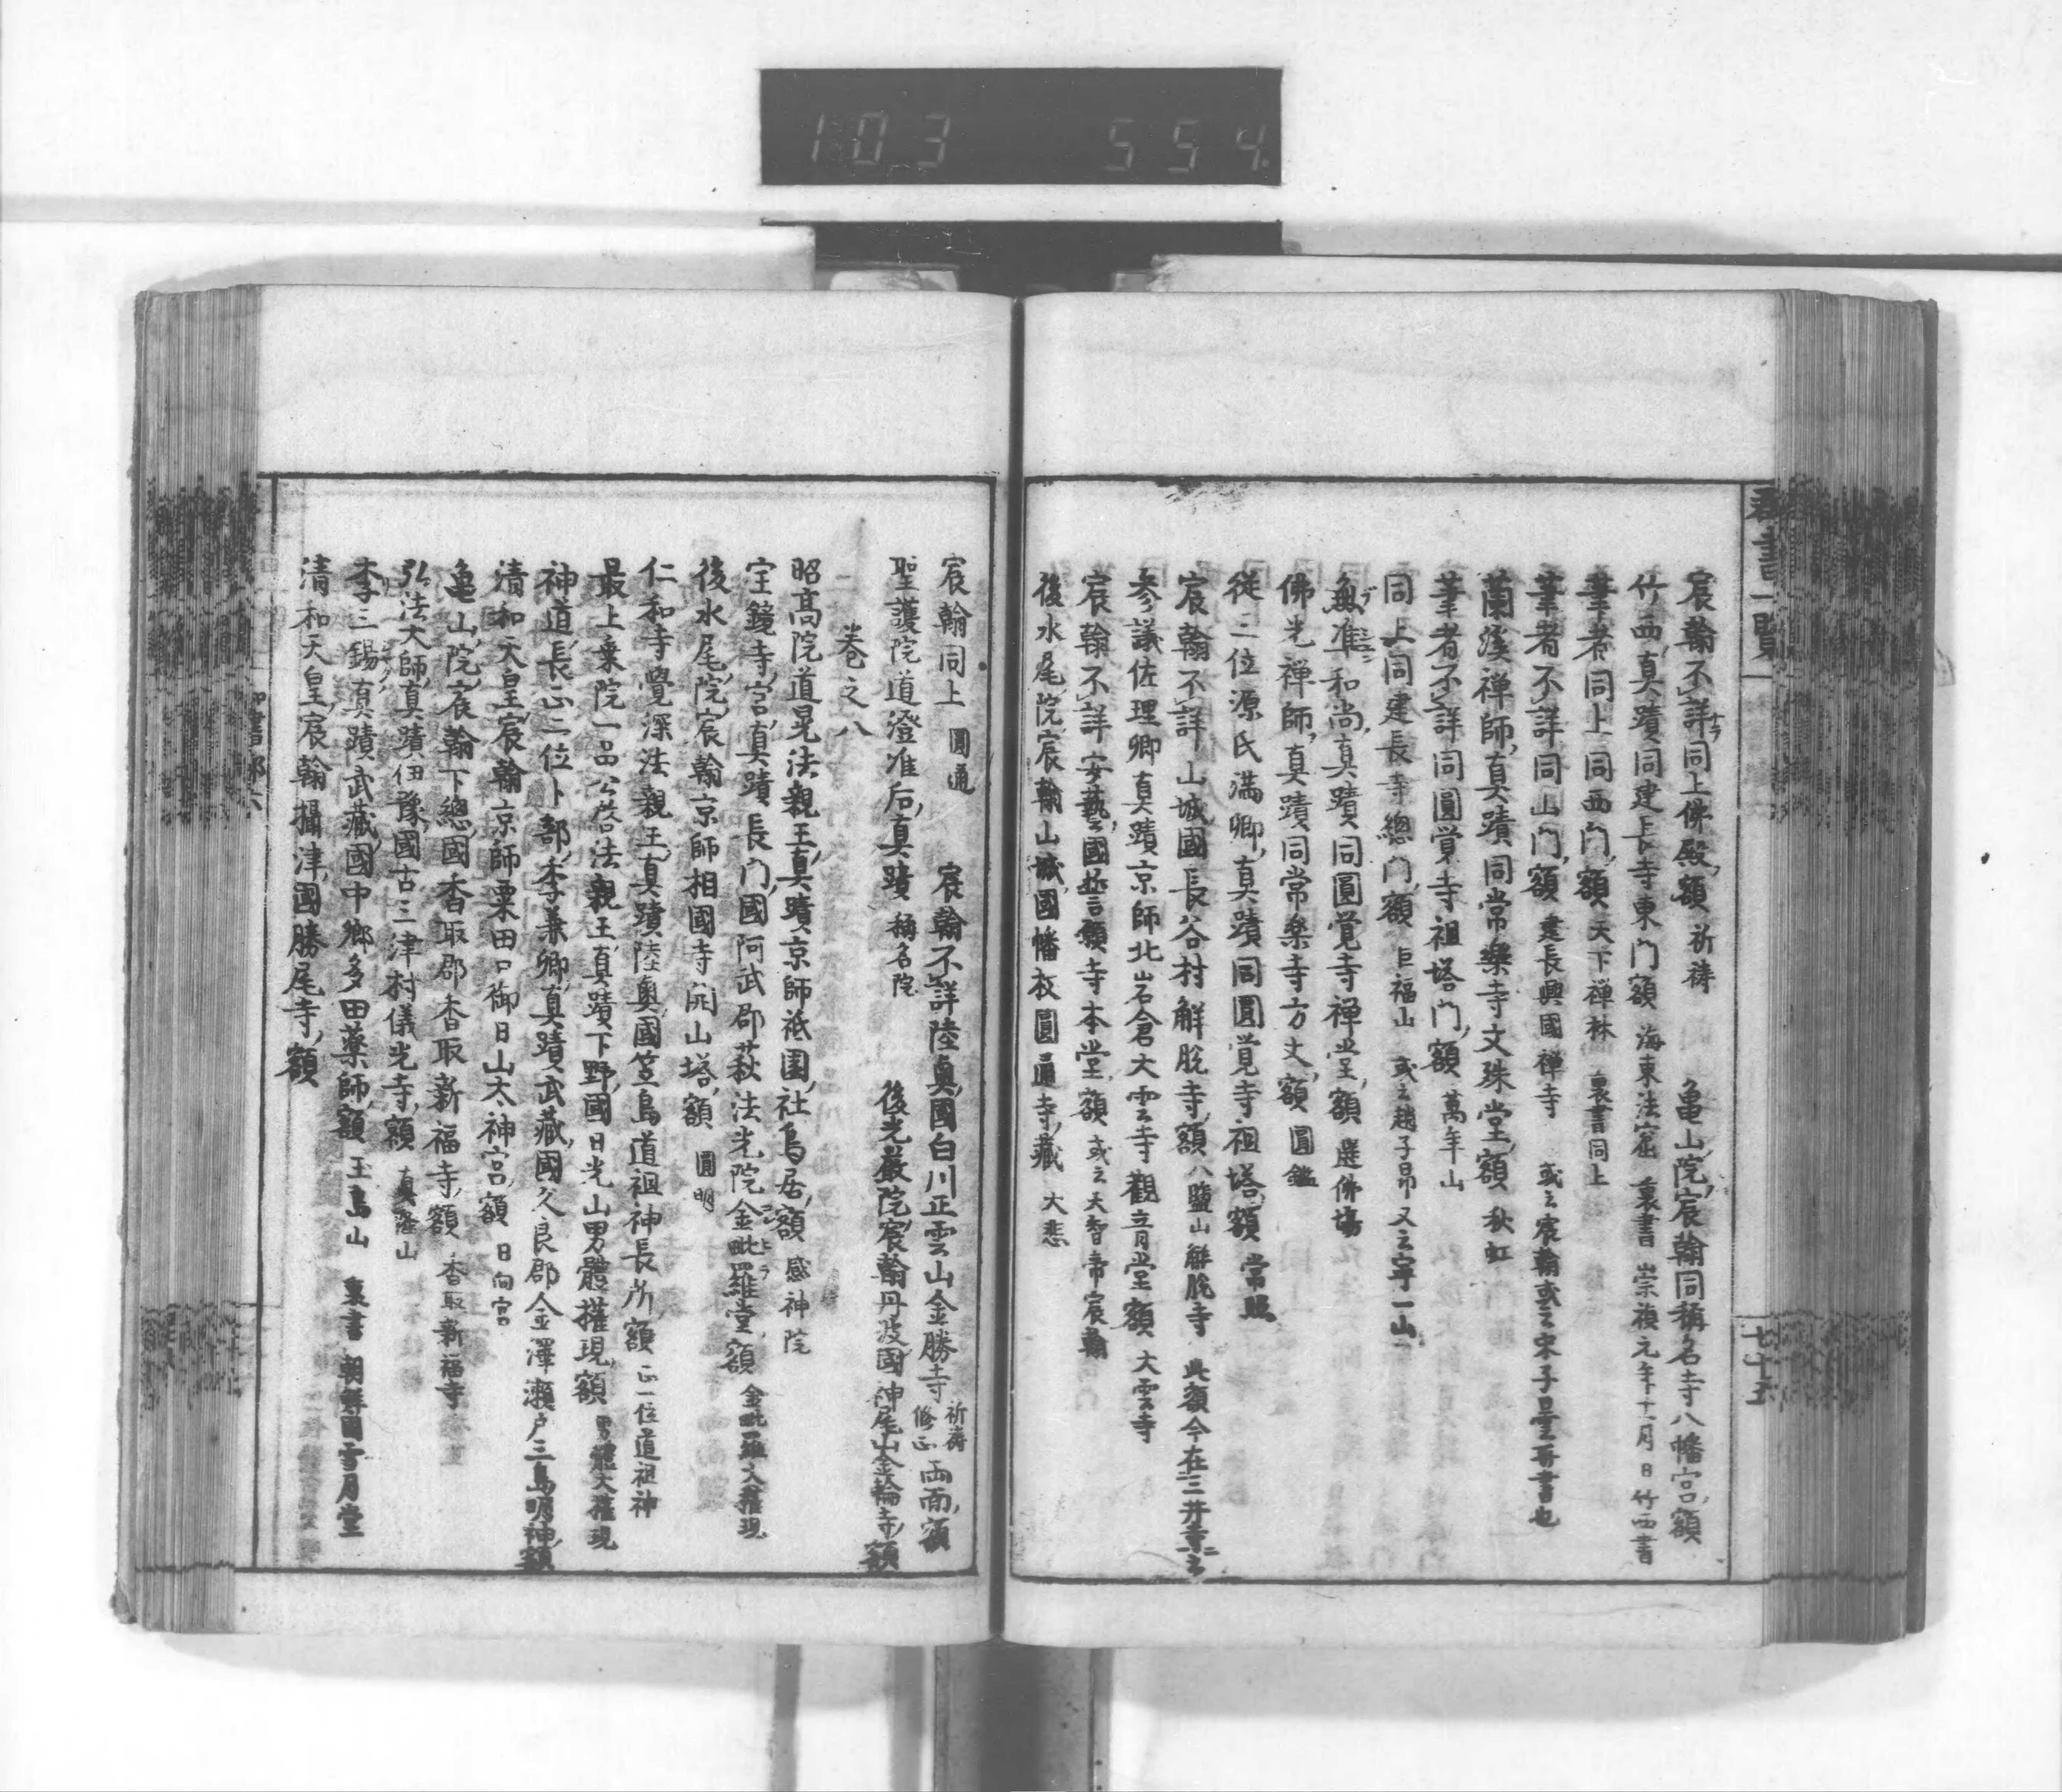 103 554.
群書一覧
七十五
宸翰不詳同上佛殿額 祈祷 亀山院宸翰同稱名寺八幡宮額
竹西真蹟同建長寺東門額 海東法窟 裏書 崇禎元年十一月 日 竹西書
筆者同上同西門額 天下禅林 裏書同上
筆者不詳同山門額 建長興國禅寺 或云宸翰或云宋子曇
蘭溪禅師真蹟同常樂寺文珠堂額 秋虹
筆者不詳同圓覚寺祖塔門額 萬年山
同上同建長寺總門額 巨福山 或云趙子昂又云寧一山
無準和尚真蹟同圓覚寺禅堂額 選佛場
佛光禅師真蹟同常楽寺方丈額 圓鑑
従二位源氏満卿真蹟同圓覚寺祖塔額 常照
宸翰不詳山城國長谷村解脱寺額 八鹽山解脱寺 此額今在三井寺云
参議佐理卿真蹟京師北岩倉大雲寺觀音堂額 大雲寺
宸翰不詳安藝國誓願寺本堂額 或云天智帝宸翰
後水尾院宸翰山城國幡枝圓通寺藏 大悲
宸翰同上 圓通 宸翰不詳陸奥國白川正雲山金勝寺 祈祷 修正 両面額
聖護院道澄准后真蹟 稱名院 後光厳院宸翰丹波國神尾山金輪寺額
巻之八
昭高院道晃法親王真蹟京師祗園社鳥居額 感神院
宝鏡寺宮真蹟長門國阿武郡萩法光院金毗羅堂額 金毗羅大権現
後水尾院宸翰京師相國寺開山塔額 圓明
仁和寺覺深法親王真蹟陸奥國笠島道祖神長所額 正一位道祖神
最上乗院一品公啓法親王真蹟下野國日光山男體権現額 男體大権現
神道長正二位卜部季兼卿真蹟武藏國久良郡金澤瀬戸三島明神額
清和天皇宸翰京師粟田口御日山太神宮額 日向宮
亀山院宸翰下總國香取郡香取新福寺額 香取新福寺
弘法大師真蹟伊豫國古三津村儀光寺額 真蓬山
李三錫真蹟武藏國中郷多田薬師額 玉島山 裏書 朝鮮國雪月堂
清和天皇宸翰攝津國勝尾寺額